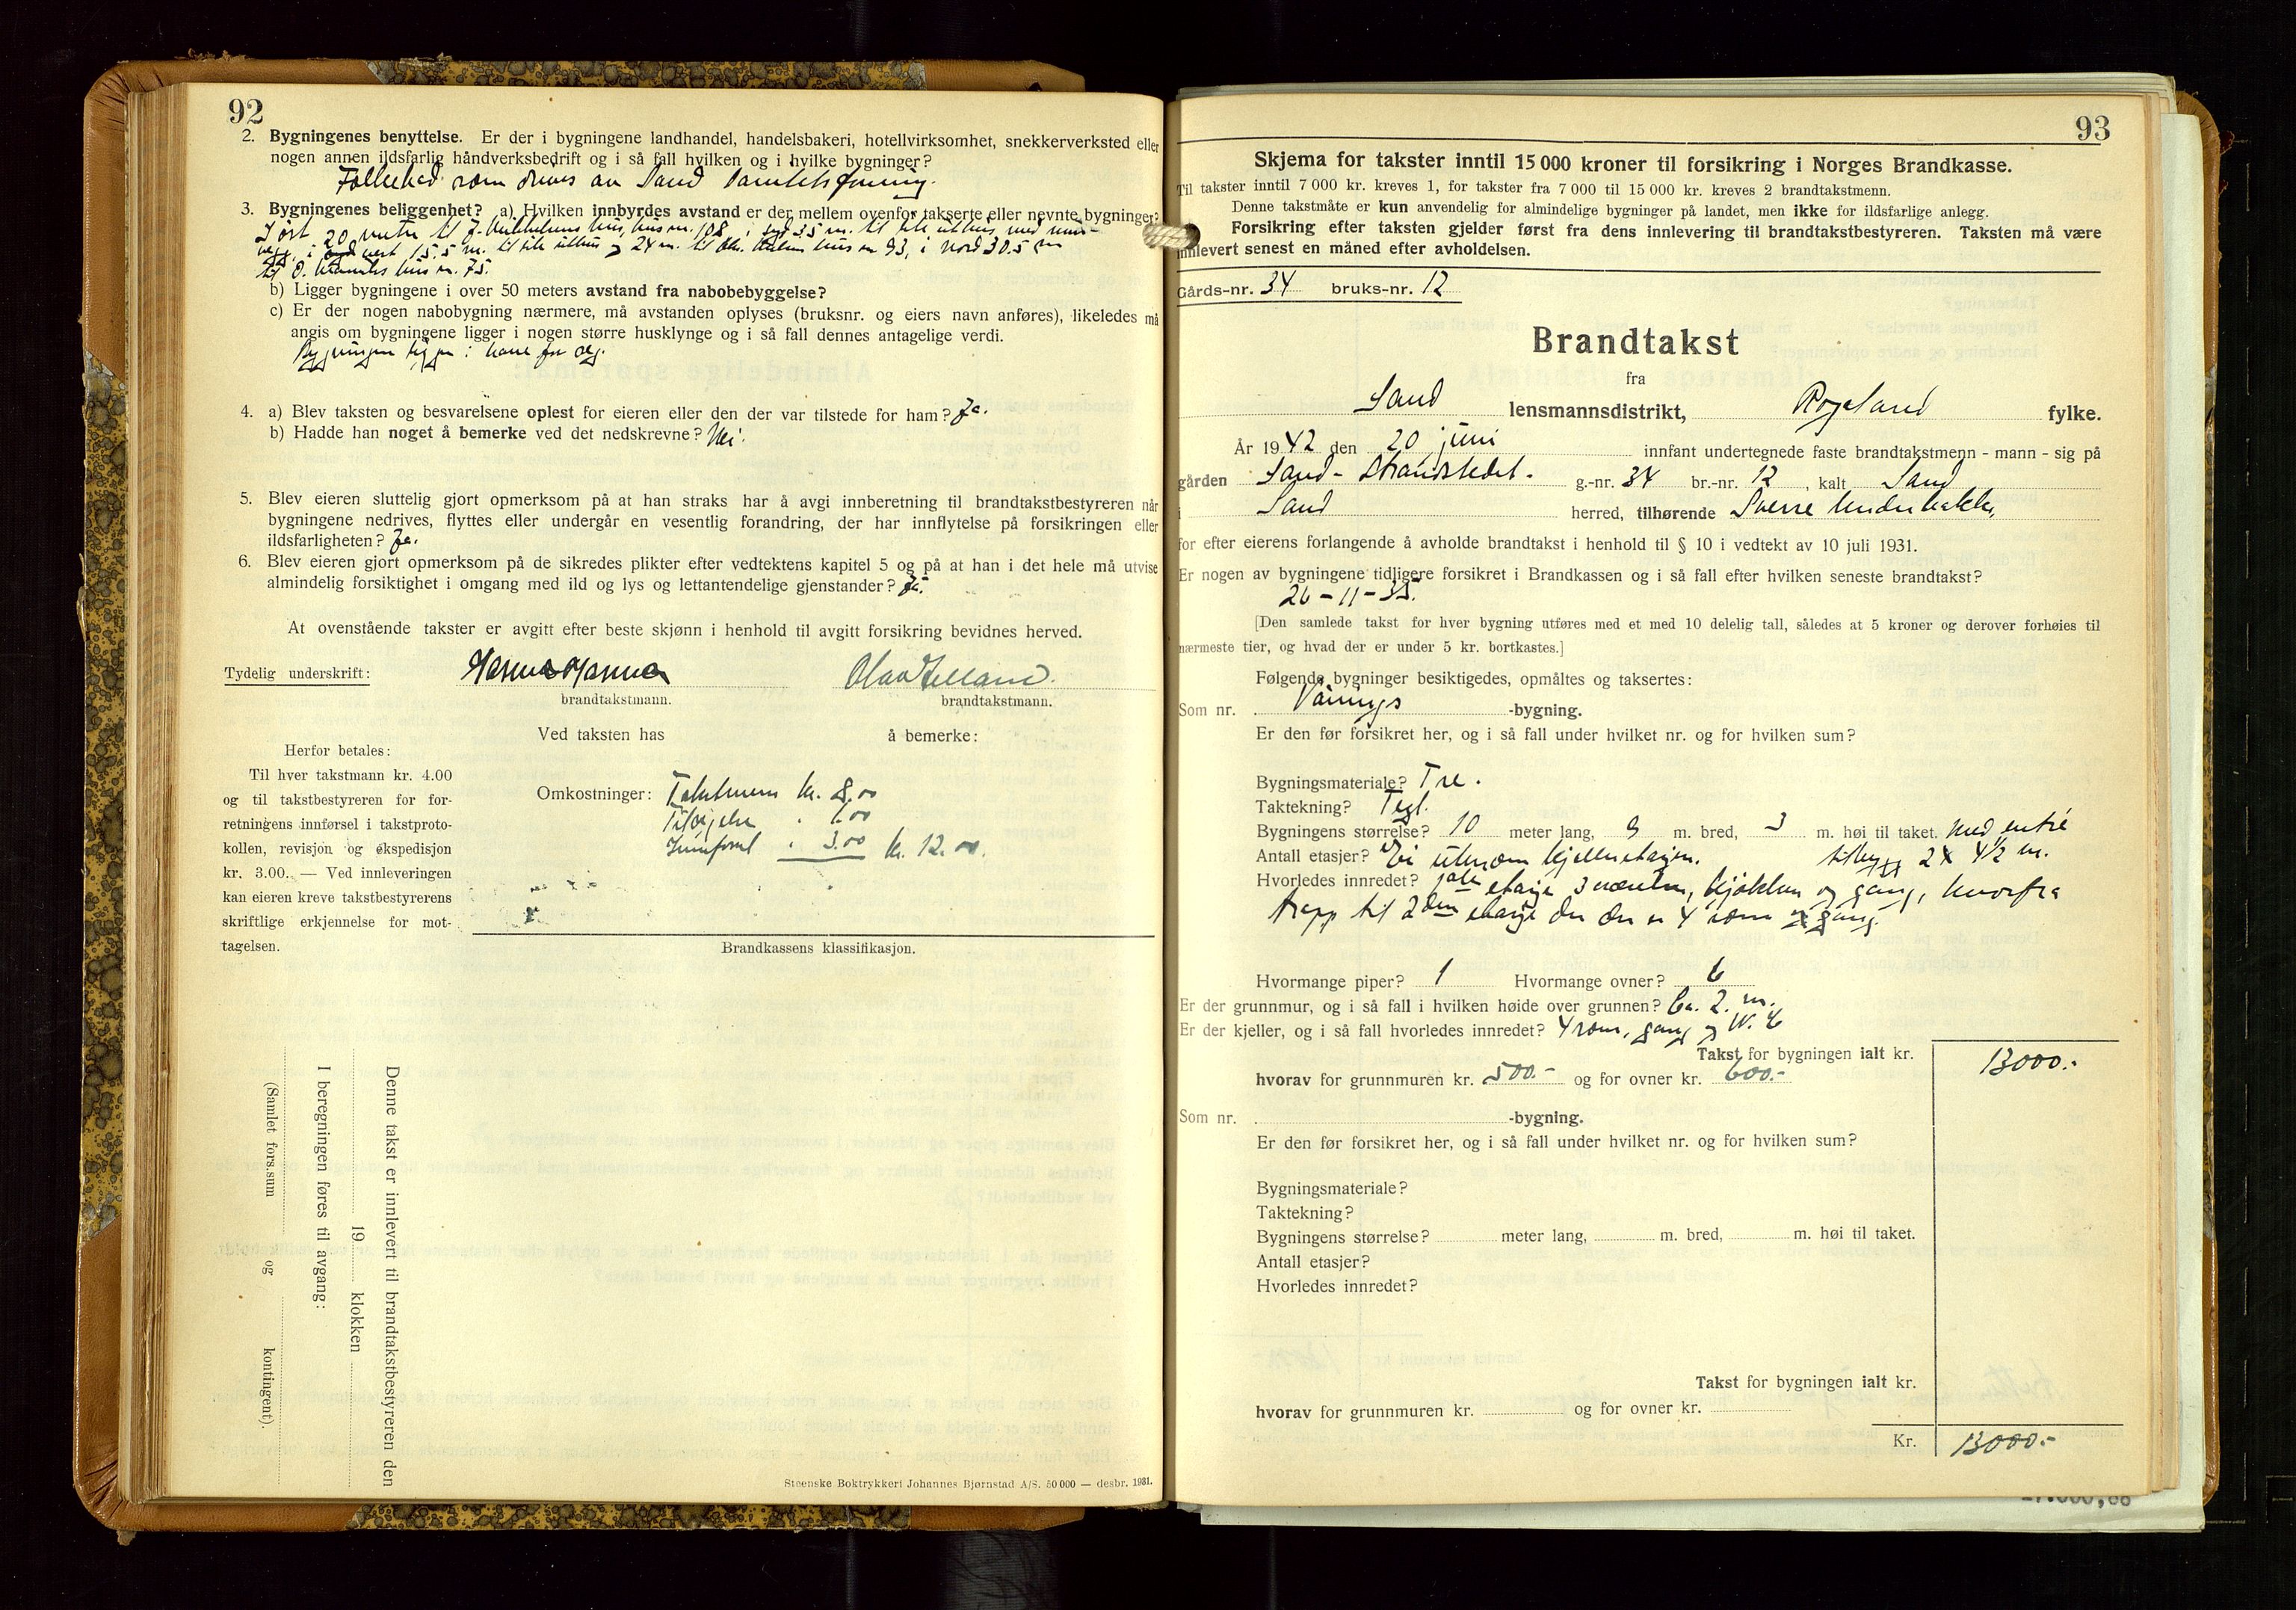 92
2. Bygningenes benyttelse. Er der i bygningene landhandel, handelsbakeri, hotellvirksomhet, snekkerverksted eller
nogen annen ildsfarlig håndverksbedrift og i så fall hvilken og i hvilke bygninger?
Folkebad som drives av Sand Sanitetsforening.
3. Bygningenes beliggenhet? a) Hvilken innbyrdes avstand er der mellem ovenfor takserte eller nevnte bygninger?
I öst 20 meter til hus, hus nr. 108, i syd 35 m. til uthus med mur-
vegg, i vest 15.5 m. til uthus og 24 m. til hus nr. 93, i nord 30.5 m
til O. hus nr. 75.
b) Ligger bygningene i over 50 meters avstand fra nabobebyggelse?
c) Er der nogen nabobygning nærmere, må avstanden oplyses (bruksnr. og eiers navn anføres), likeledes må
angis om bygningene ligger i nogen større husklynge og i så fall dennes antagelige verdi.
Bygningen ligger i have for seg.
4. a) Blev taksten og besvarelsene oplest for eieren eller den der var tilstede for ham? Ja.
b) Hadde han noget å bemerke ved det nedskrevne? Nei.
5. Blev eieren sluttelig gjort opmerksom på at han straks har å avgi innberetning til brandtakstbestyreren når
bygningene nedrives, flyttes eller undergår en vesentlig forandring, der har innflytelse på forsikringen eller
ildsfarligheten? Ja.
6. Blev eieren gjort opmerksom på de sikredes plikter efter vedtektens kapitel 5 og på at han i det hele må utvise
almindelig forsiktighet i omgang med ild og lys og lettantendelige gjenstander? Ja.
At ovenstående takster er avgitt efter beste skjønn i henhold til avgitt forsikring bevidnes herved.
Tydelig underskrift: Olav Helland.
brandtakstmann. brandtakstmann.
Ved taksten has å bemerke:
Herfor betales:
Til hver takstmann kr. 4.00
og til takstbestyreren for for-
retningens innførsel i takstproto-
kollen, revisjon og ekspedisjon
kr. 3.00. — Ved innleveringen
kan eieren kreve takstbestyrerens
skriftlige erkjennelse for mot-
tagelsen.
Omkostninger: Takstmenn kr. 8.00
Tilsigelse " 1.00
Innførsel " 3.00 kr. 12.00.
Brandkassens klassifikasjon.
Denne takst er innlevert til brandtakstbestyreren den
19 klokken
I beregningen føres til avgang:
(Samlet fors.sum og kontingent).
Steenske Boktrykkeri Johannes Bjørnstad A/S. 50 000 — desbr. 1931.
93
Skjema for takster inntil 15 000 kroner til forsikring i Norges Brandkasse.
Til takster inntil 7 000 kr. kreves 1, for takster fra 7 000 til 15 000 kr. kreves 2 brandtakstmenn.
Denne takstmåte er kun anvendelig for almindelige bygninger på landet, men ikke for ildsfarlige anlegg.
Forsikring efter taksten gjelder først fra dens innlevering til brandtakstbestyreren. Taksten må være
innlevert senest en måned efter avholdelsen.
Gårds-nr. 34 bruks-nr. 12
Brandtakst
fra
Sand lensmannsdistrikt, Rogaland fylke.
År 1942 den 20 juni innfant undertegnede faste brandtakstmenn - mann - sig på
gården Sand - Strandstedet. g.-nr. 34 br.-nr. 12, kalt Sand
i Sand herred, tilhørende Sverre Underbakke,
for efter eierens forlangende å avholde brandtakst i henhold til § 10 i vedtekt av 10 juli 1931.
Er nogen av bygningene tidligere forsikret i Brandkassen og i så fall efter hvilken seneste brandtakst?
26-11-35.
[Den samlede takst for hver bygning utføres med et med 10 delelig tall, således at 5 kroner og derover forhøies til
nærmeste tier, og hvad der er under 5 kr. bortkastes.]
Følgende bygninger besiktigedes, opmåltes og taksertes:
Som nr. Vånings -bygning.
Er den før forsikret her, og i så fall under hvilket nr. og for hvilken sum?
Bygningsmateriale? Tre.
Taktekning? Tegl.
Bygningens størrelse? 10 meter lang, 9 m. bred, 3 m. høi til taket. med entré
Antall etasjer? Ei utenom kjelleretasjen. tilbygg 2 x 4½ m.
Hvorledes innredet? 1ste etasje 3 værelser, kjøkken og gang, hvorfra
trapp til 2den etasje der der er 4 rom og gang.
Hvormange piper? 1 Hvormange ovner? 6
Er der grunnmur, og i så fall i hvilken høide over grunnen? Ca. 2. m.
Er der kjeller, og i så fall hvorledes innredet? 4 rom, gang og W.C
Takst for bygningen ialt kr. 13000.-
hvorav for grunnmuren kr. 500.- og for ovner kr. 600.-
Som nr. -bygning.
Er den før forsikret her, og i så fall under hvilket nr. og for hvilken sum?
Bygningsmateriale?
Taktekning?
Bygningens størrelse? meter lang, m. bred, m. høi til taket.
Antall etasjer?
Hvorledes innredet?
Takst for bygningen ialt kr.
hvorav for grunnmuren kr. og for ovner kr.
Kr. 13000.-